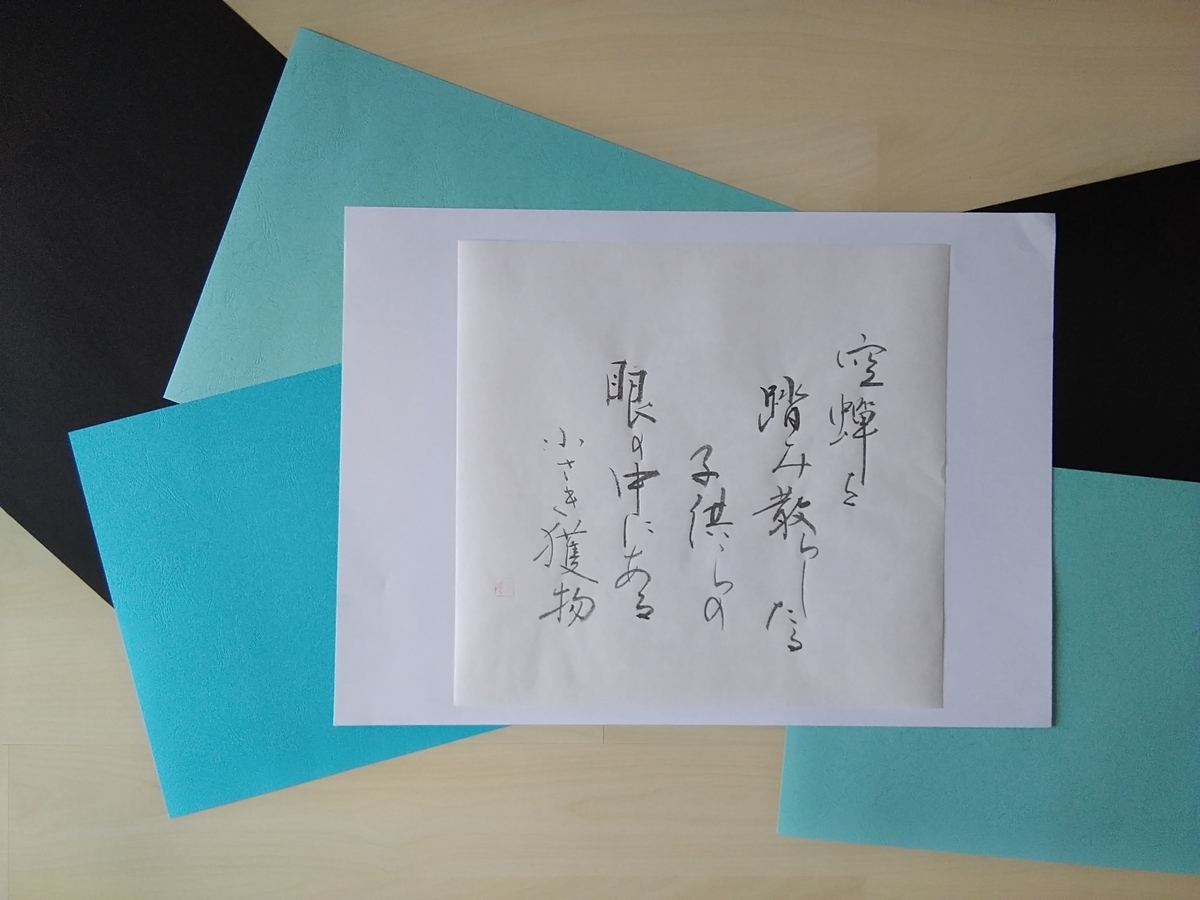 空蝉を
踏み散らしたる
子供らの
眼の中にある
小さき獲物